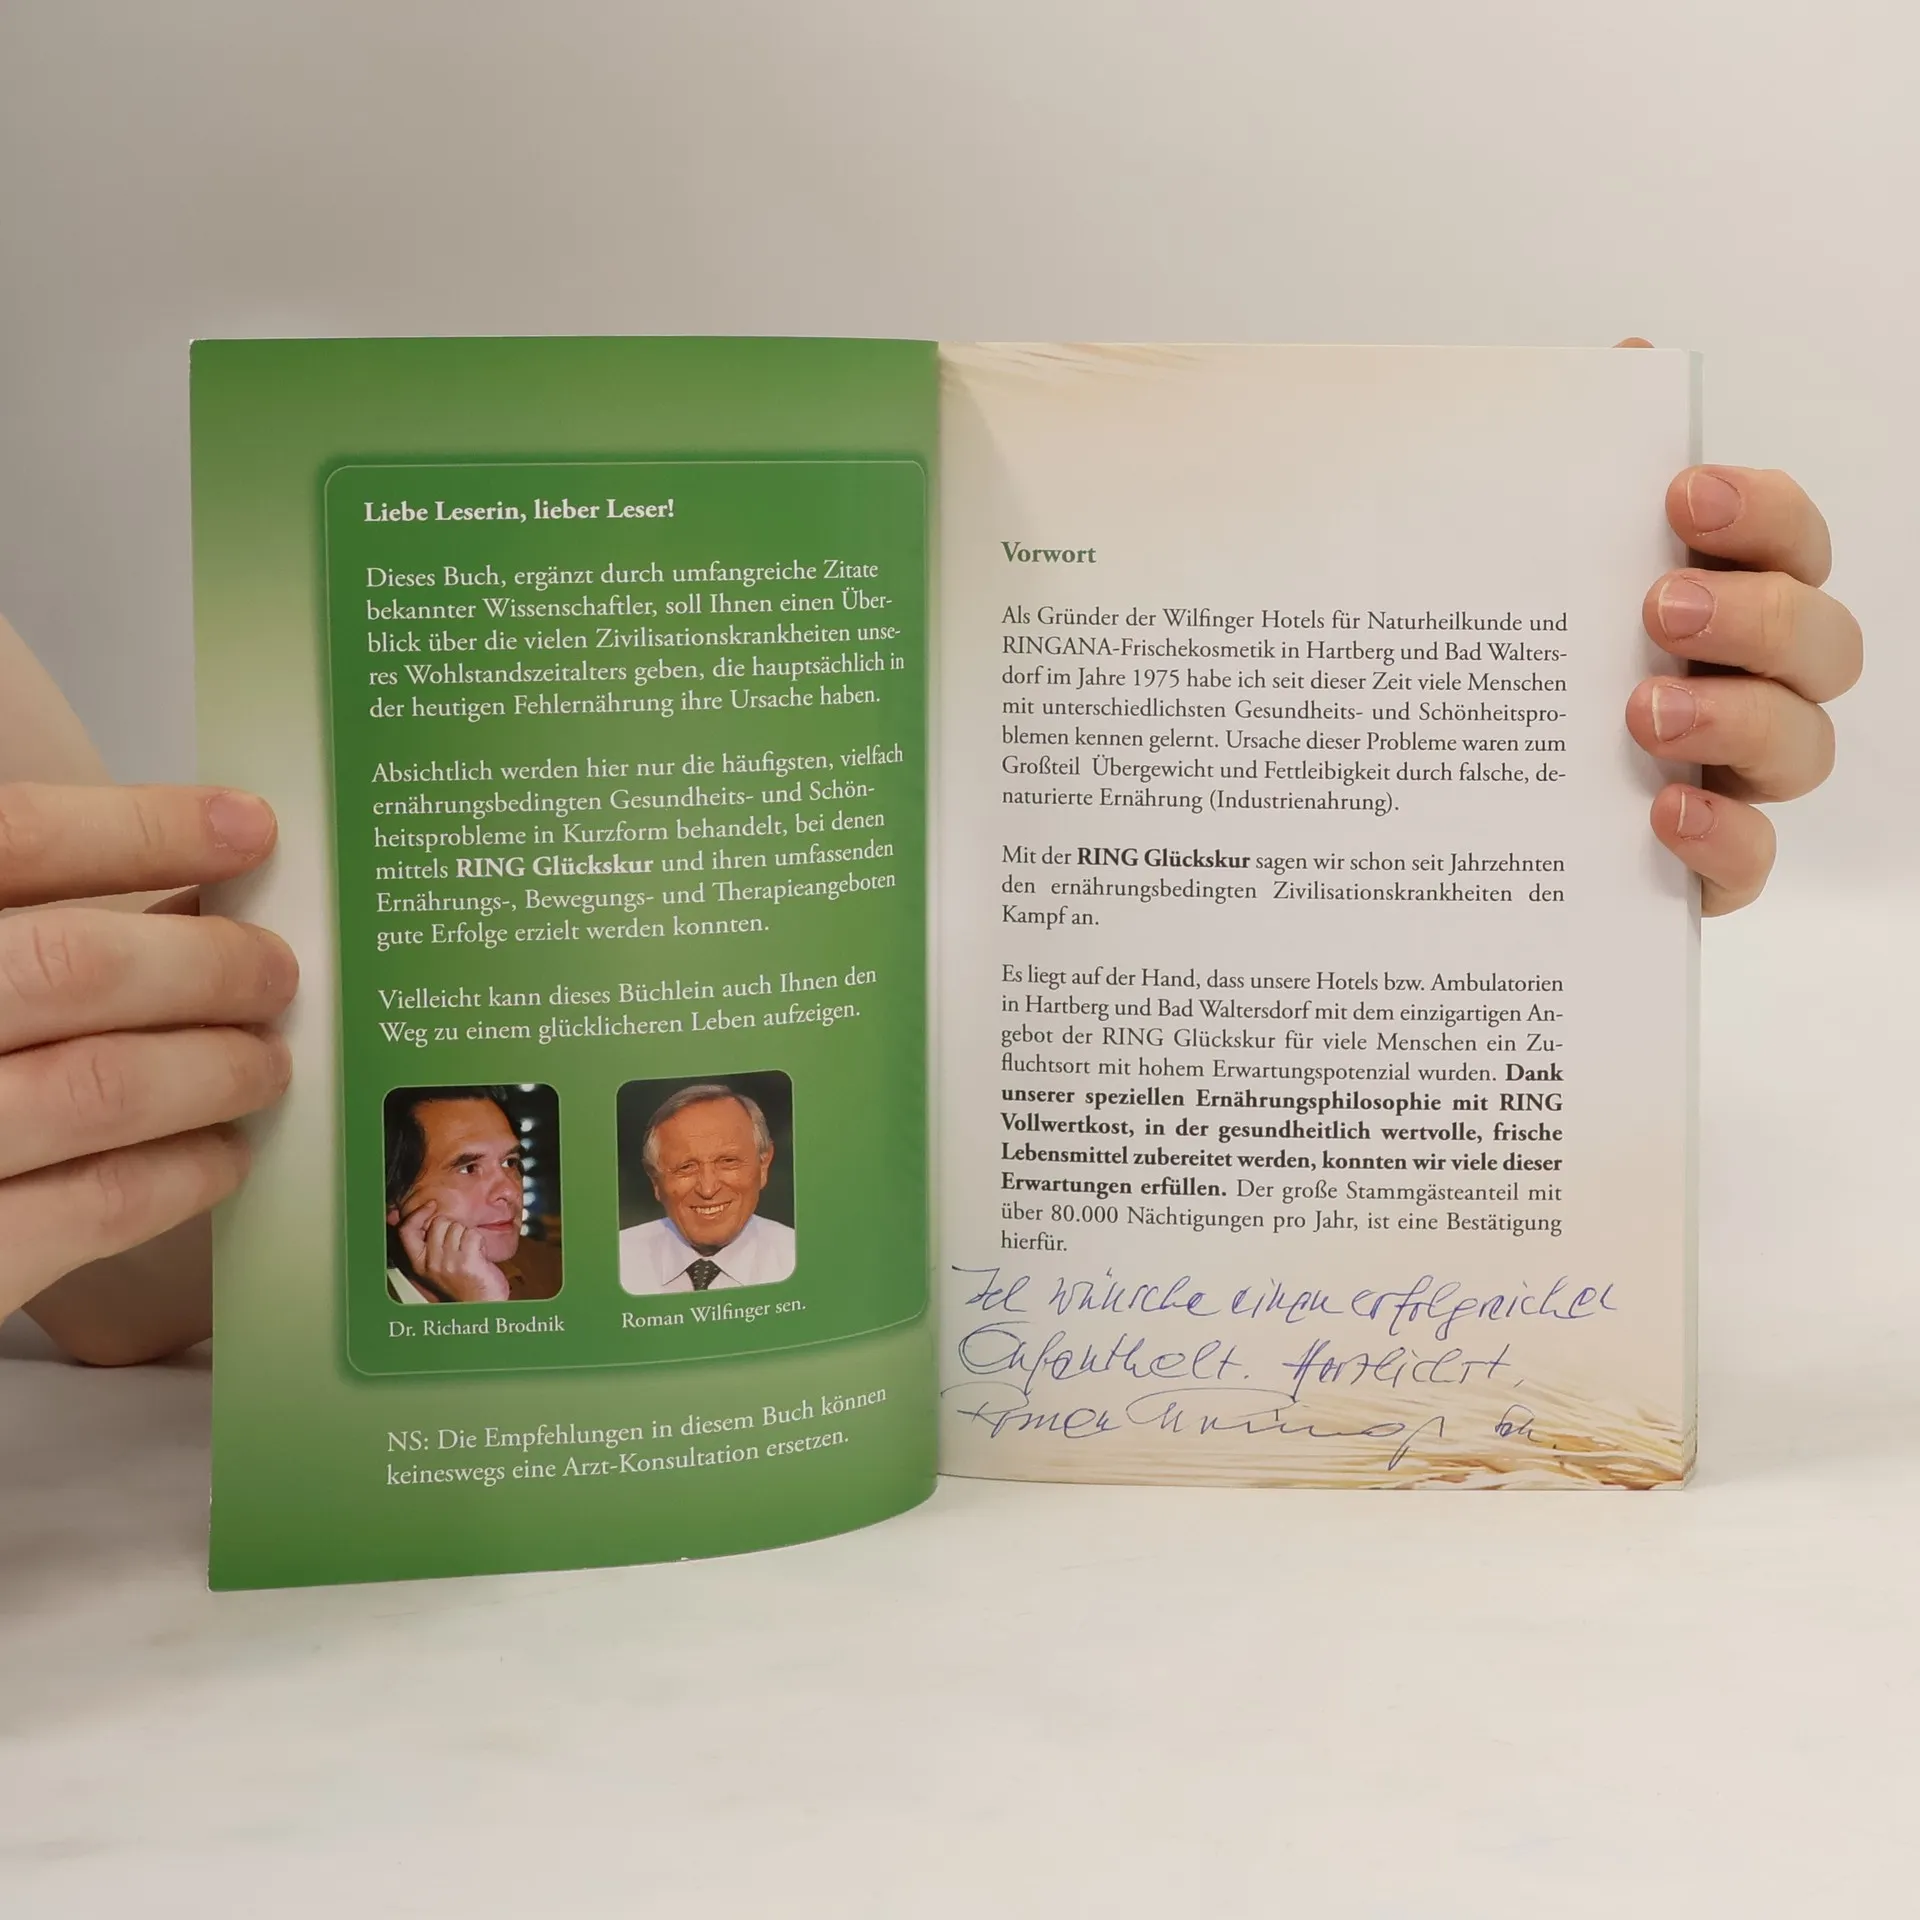 Liebe Leserin, lieber Leser!
Dieses Buch, ergänzt durch umfangreiche Zitate
bekannter Wissenschaftler, soll Ihnen einen Über-
blick über die vielen Zivilisationskrankheiten unse-
res Wohlstandszeitalters geben, die hauptsächlich in
der heutigen Fehlernährung ihre Ursache haben.
Absichtlich werden hier nur die häufigsten, vielfach
ernährungsbedingten Gesundheits- und Schön-
heitsprobleme in Kurzform behandelt, bei denen
mittels RING Glückskur und ihren umfassenden
Ernährungs-, Bewegungs- und Therapieangeboten
gute Erfolge erzielt werden konnten.
Vielleicht kann dieses Büchlein auch Ihnen den
Weg zu einem glücklicheren Leben aufzeigen.
Dr. Richard Brodnik
Roman Wilfinger sen.
NS: Die Empfehlungen in diesem Buch können
keineswegs eine Arzt-Konsultation ersetzen.
Vorwort
Als Gründer der Wilfinger Hotels für Naturheilkunde und
RINGANA-Frischekosmetik in Hartberg und Bad Walters-
dorf im Jahre 1975 habe ich seit dieser Zeit viele Menschen
mit unterschiedlichsten Gesundheits- und Schönheitspro-
blemen kennen gelernt. Ursache dieser Probleme waren zum
Großteil Übergewicht und Fettleibigkeit durch falsche, de-
naturierte Ernährung (Industrienahrung).
Mit der RING Glückskur sagen wir schon seit Jahrzehnten
den ernährungsbedingten Zivilisationskrankheiten den
Kampf an.
Es liegt auf der Hand, dass unsere Hotels bzw. Ambulatorien
in Hartberg und Bad Waltersdorf mit dem einzigartigen An-
gebot der RING Glückskur für viele Menschen ein Zu-
fluchtsort mit hohem Erwartungspotenzial wurden. Dank
unserer speziellen Ernährungsphilosophie mit RING
Vollwertkost, in der gesundheitlich wertvolle, frische
Lebensmittel zubereitet werden, konnten wir viele dieser
Erwartungen erfüllen. Der große Stammgästeanteil mit
über 80.000 Nächtigungen pro Jahr, ist eine Bestätigung
hierfür.
Ich wünsche einen erfolgreichen
Aufenthalt. Herzlichst,
Roman Wilfinger sen.